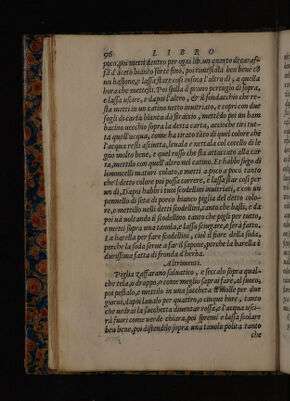 96 LIBRO
poco, poi metti dentro per ogni lib. un quarto di caraf-
fa d'aceto bianco forte fino, poi rimescola ben bene cō
un bastone, e lassa stare così insino l'altro dì, a quella
hora che mettesti. Poi stilla il primo pertugio di sopra,
e lassa uscire, e dapoi l'altro, & il fondacchio che re-
sta metti in un catino netto invitriato, e copri con due
fogli di carta bianca da straccio, mettēdo poi un bam
bacino vecchio sopra la detta carta, acciocche tiri tut-
ta quell'acqua, come ha tirato tāto di quel colore che
l'acqua resti asciutta, levala e nettala col cortello di le
gno molto bene, e quel rosso che sta attaccato alla car
ta, mettilo con quell'altro nel catino. Et habbi sugo di
limoncelli maturi colato, e metti a poco a poco tanto
che'l detto colore poi possa correre, e lassa star così per
un dì, Dapoi habbi i tuoi scodellini invitriati, e con un
pennello di seta di porco bianco piglia del detto colo-
re, e mettilo nelli detti scodellini, tanto che basti, e da
poi và noltando il scodellino tanto che pigli per tutto,
e metti sopra una tavola, e lassa sciugare, e serà fatto.
La barella per fare scodellini, cioè il fiore della soda,
perche la soda serve a far il sapone, perche la barella è
durissima fatta di fronda d'herba.
Altrimenti.
Piglia zaffarano salvatico, e seccalo sopra qual-
che tela, o drappo, o come meglio saprai fare, al fuoco,
poi pestalo, e mettilo in una sacchetta à molle per due
giurni, dapoi lavalo per quattro, o cinque hore, tanto
che vedrai la sacchetta diventar rossa, e l'acqua usci-
rà fuori come verde chiara, poi spremi e lassa scolare
ben bene, poi distendilo sopra una tavola polita tanto
che